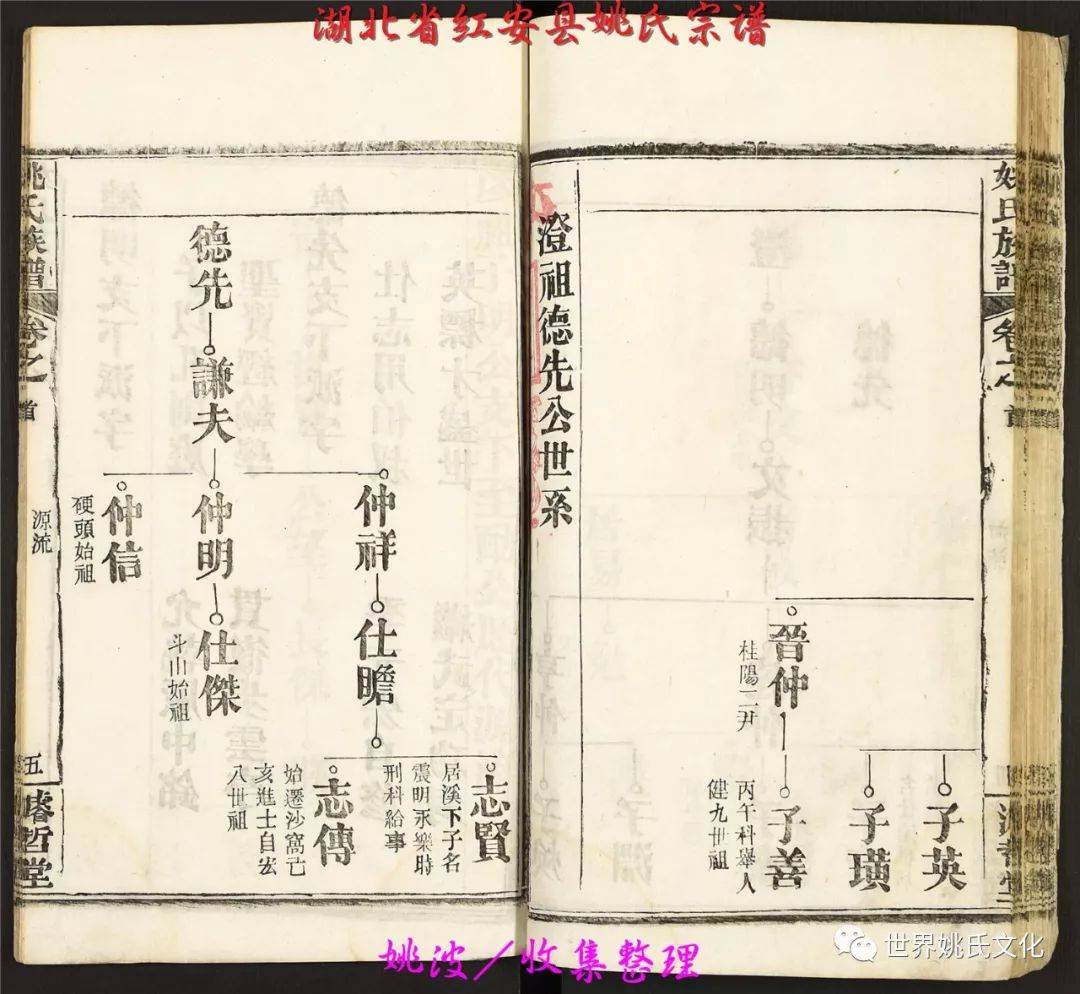 湖北省红安县姚氏宗谱
姚氏族譜
卷之
首
子英
子璜
晉仲
桂陽二尹
子善
丙午科舉人
健九世祖
澄祖德先公世系
德先
謙夫
仲祥
仕瞻
志賢
居溪下子名
震明永樂時
刑科給事
志傳
始遷沙窩己
亥進士自宏
八世祖
仲明
仕傑
斗山始祖
仲信
硬頭始祖
姚氏族譜
卷之
首
源流
五
濬哲堂
姚波/收集整理
世界姚氏文化